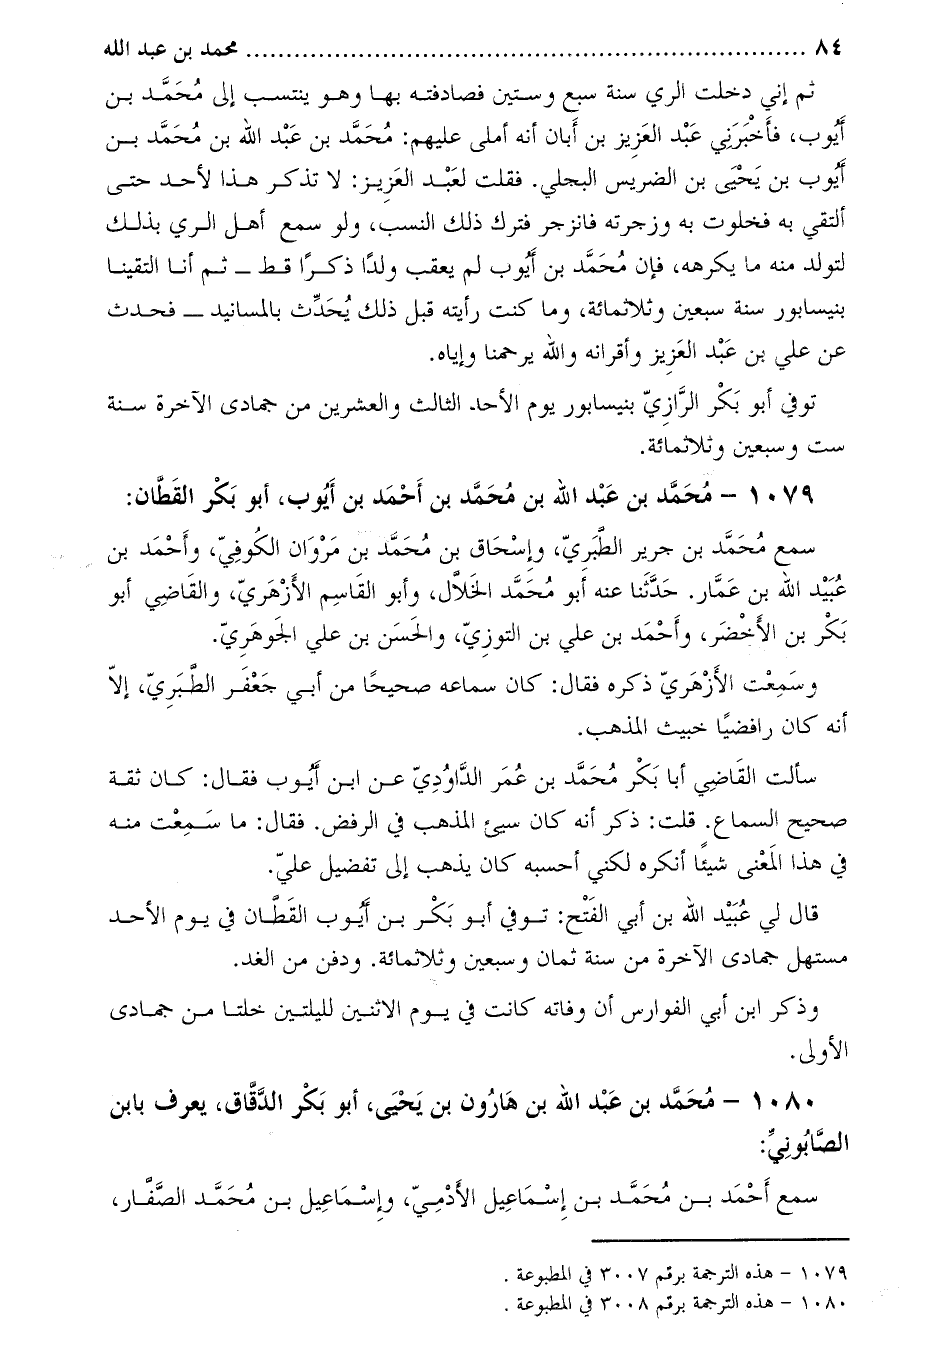 ٨٤ ...................................................................... محمد بن عبد الله
ثم إني دخلت الري سنة سبع وستين فصادفته بها وهو ينتسب إلى مُحَمَّد بن
أَيُّوب، فأَخْبَرَنِي عَبْد العَزِيز بن أَبان أنه أملى عليهم: مُحَمَّد بن عَبْد الله بن مُحَمَّد بن
أَيُّوب بن يَحْيَى بن الضريس البجلي. فقلت لعَبْد العَزِيز: لا تذكر هذا لأحد حتى
ألتقي به فخلوت به وزجرته فانزجر فترك ذلك النسب، ولو سمع أهل الري بذلك
لتولد منه ما يكرهه، فإن مُحَمَّد بن أَيُّوب لم يعقب ولدًا ذكرًا قط ــ ثم أنا التقينا
بنيسابور سنة سبعين وثلاثمائة، وما كنت رأيته قبل ذلك يُحَدِّث بالمسانيد ــ فحدث
عن علي بن عَبْد العَزِيز وأقرانه والله يرحمنا وإياه.
توفي أبو بَكْر الرَّازِيّ بنيسابور يوم الأحد الثالث والعشرين من جمادى الآخرة سنة
ست وسبعين وثلاثمائة.
١٠٧٩ – مُحَمَّد بن عَبْد الله بن مُحَمَّد بن أَحْمَد بن أَيُّوب، أبو بَكْر القَطَّان:
سمع مُحَمَّد بن جرير الطَّبَرِيّ، وإِسْحَاق بن مُحَمَّد بن مَرْوَان الكُوفِيّ، وأَحْمَد بن
عُبَيْد الله بن عَمَّار. حَدَّثَنا عنه أبو مُحَمَّد الخَلاَّل، وأبو القَاسِم الأَزْهَرِيّ، والقَاضِي أبو
بَكْر بن الأَخْضَر، وأَحْمَد بن علي بن التوزيّ، والحَسَن بن علي الجَوهَرِيّ.
وسَمِعْت الأَزْهَرِيّ ذكره فقال: كان سماعه صحيحًا من أبي جَعْفَر الطَّبَرِيّ، إلاّ
أنه كان رافضيًا خبيث المذهب.
سألت القَاضِي أبا بَكْر مُحَمَّد بن عُمَر الدَّاوُدِيّ عن ابن أَيُّوب فقال: كان ثقة
صحيح السماع. قلت: ذكر أنه كان سيئ المذهب في الرفض. فقال: ما سَمِعْت منه
في هذا المَعْنى شيئًا أنكره لكني أحسبه كان يذهب إلى تفضيل عليّ.
قال لي عُبَيْد الله بن أبي الفَتْح: توفي أبو بَكْر بن أَيُّوب القَطَّان في يوم الأحد
مستهل جمادى الآخرة من سنة ثمان وسبعين وثلاثمائة. ودفن من الغد.
وذكر ابن أبي الفوارس أن وفاته كانت في يوم الاثنين لليلتين خلتا من جمادى
الأولى.
١٠٨٠ – مُحَمَّد بن عَبْد الله بن هَارُون بن يَحْيَى، أبو بَكْر الدَّقَّاق، يعرف بابن
الصَّابُونِيِّ:
سمع أَحْمَد بن مُحَمَّد بن إِسْمَاعِيل الأَدْمِيّ، وإِسْمَاعِيل بن مُحَمَّد الصَّفَّار،
١٠٧٩ – هذه الترجمة برقم ٣٠٠٧ في المطبوعة .
١٠٨٠ – هذه الترجمة برقم ٣٠٠٨ في المطبوعة .